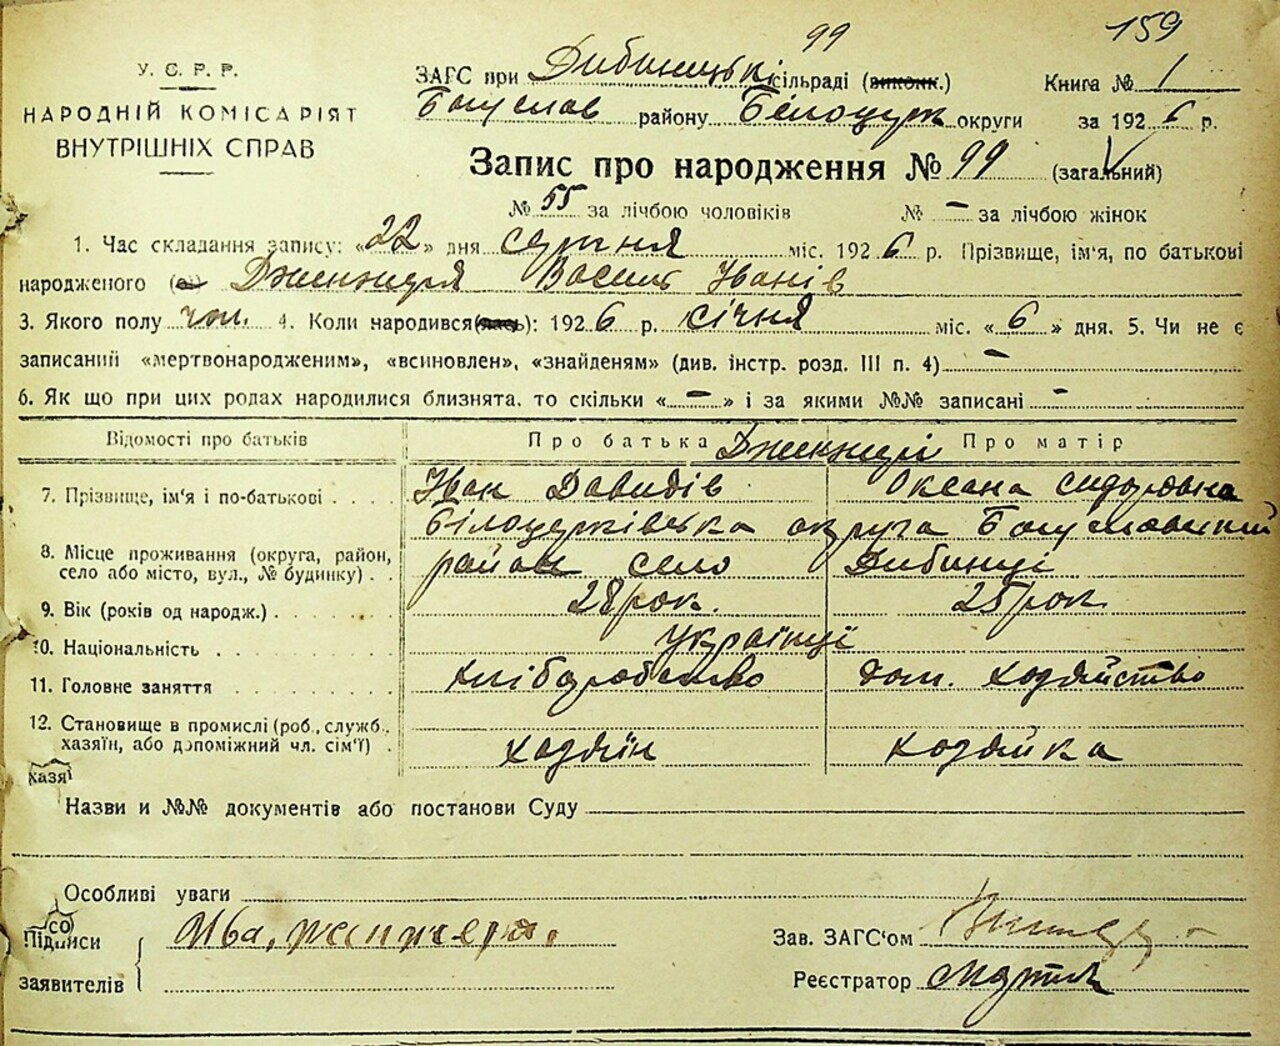 159
99
У. С. Р. Р.
НАРОДНІЙ КОМІСАРІЯТ
ВНУТРІШНІХ СПРАВ
ЗАГС при Дибинецькі сільраді (виконк.) Книга № 1
Богуслав району Білоцерк округи за 1926 р.
Запис про народження № 99 (загальний)
№ 55 за лічбою чоловіків № - за лічбою жінок
1. Час складання запису: «22» дня серпня міс. 1926 р. Прізвище, ім'я, по батькові
народженого Василь Іванів
3. Якого полу чол. 4. Коли народився(лась): 1926 р. січня міс. «6» дня. 5. Чи не є
записаний «мертвонародженим», «всиновлен», «знайденям» (див. інстр. розд. III п. 4) -
6. Як що при цих родах народилися близнята, то скільки «-» і за якими №№ записані -
Відомості про батьків Про батька Про матір
7. Прізвище, ім'я і по-батькові Іван Давидів Оксана Сидоровна
Білоцерківська округа Богуславський
8. Місце проживання (округа, район,
село або місто, вул., № будинку) район село Дибинці
9. Вік (років од народж.) 28 рок. 25 рок.
10. Національність Українці
11. Головне заняття хліборобство дом. хозяйство
12. Становище в промислі (роб., служб.,
хазяїн, або допоміжний чл. сім'ї) хозяїн хозяйка
хазя
Назви и №№ документів або постанови Суду
Особливі уваги
со
Підписи
заявителів
Зав. ЗАГС'ом
Реєстратор